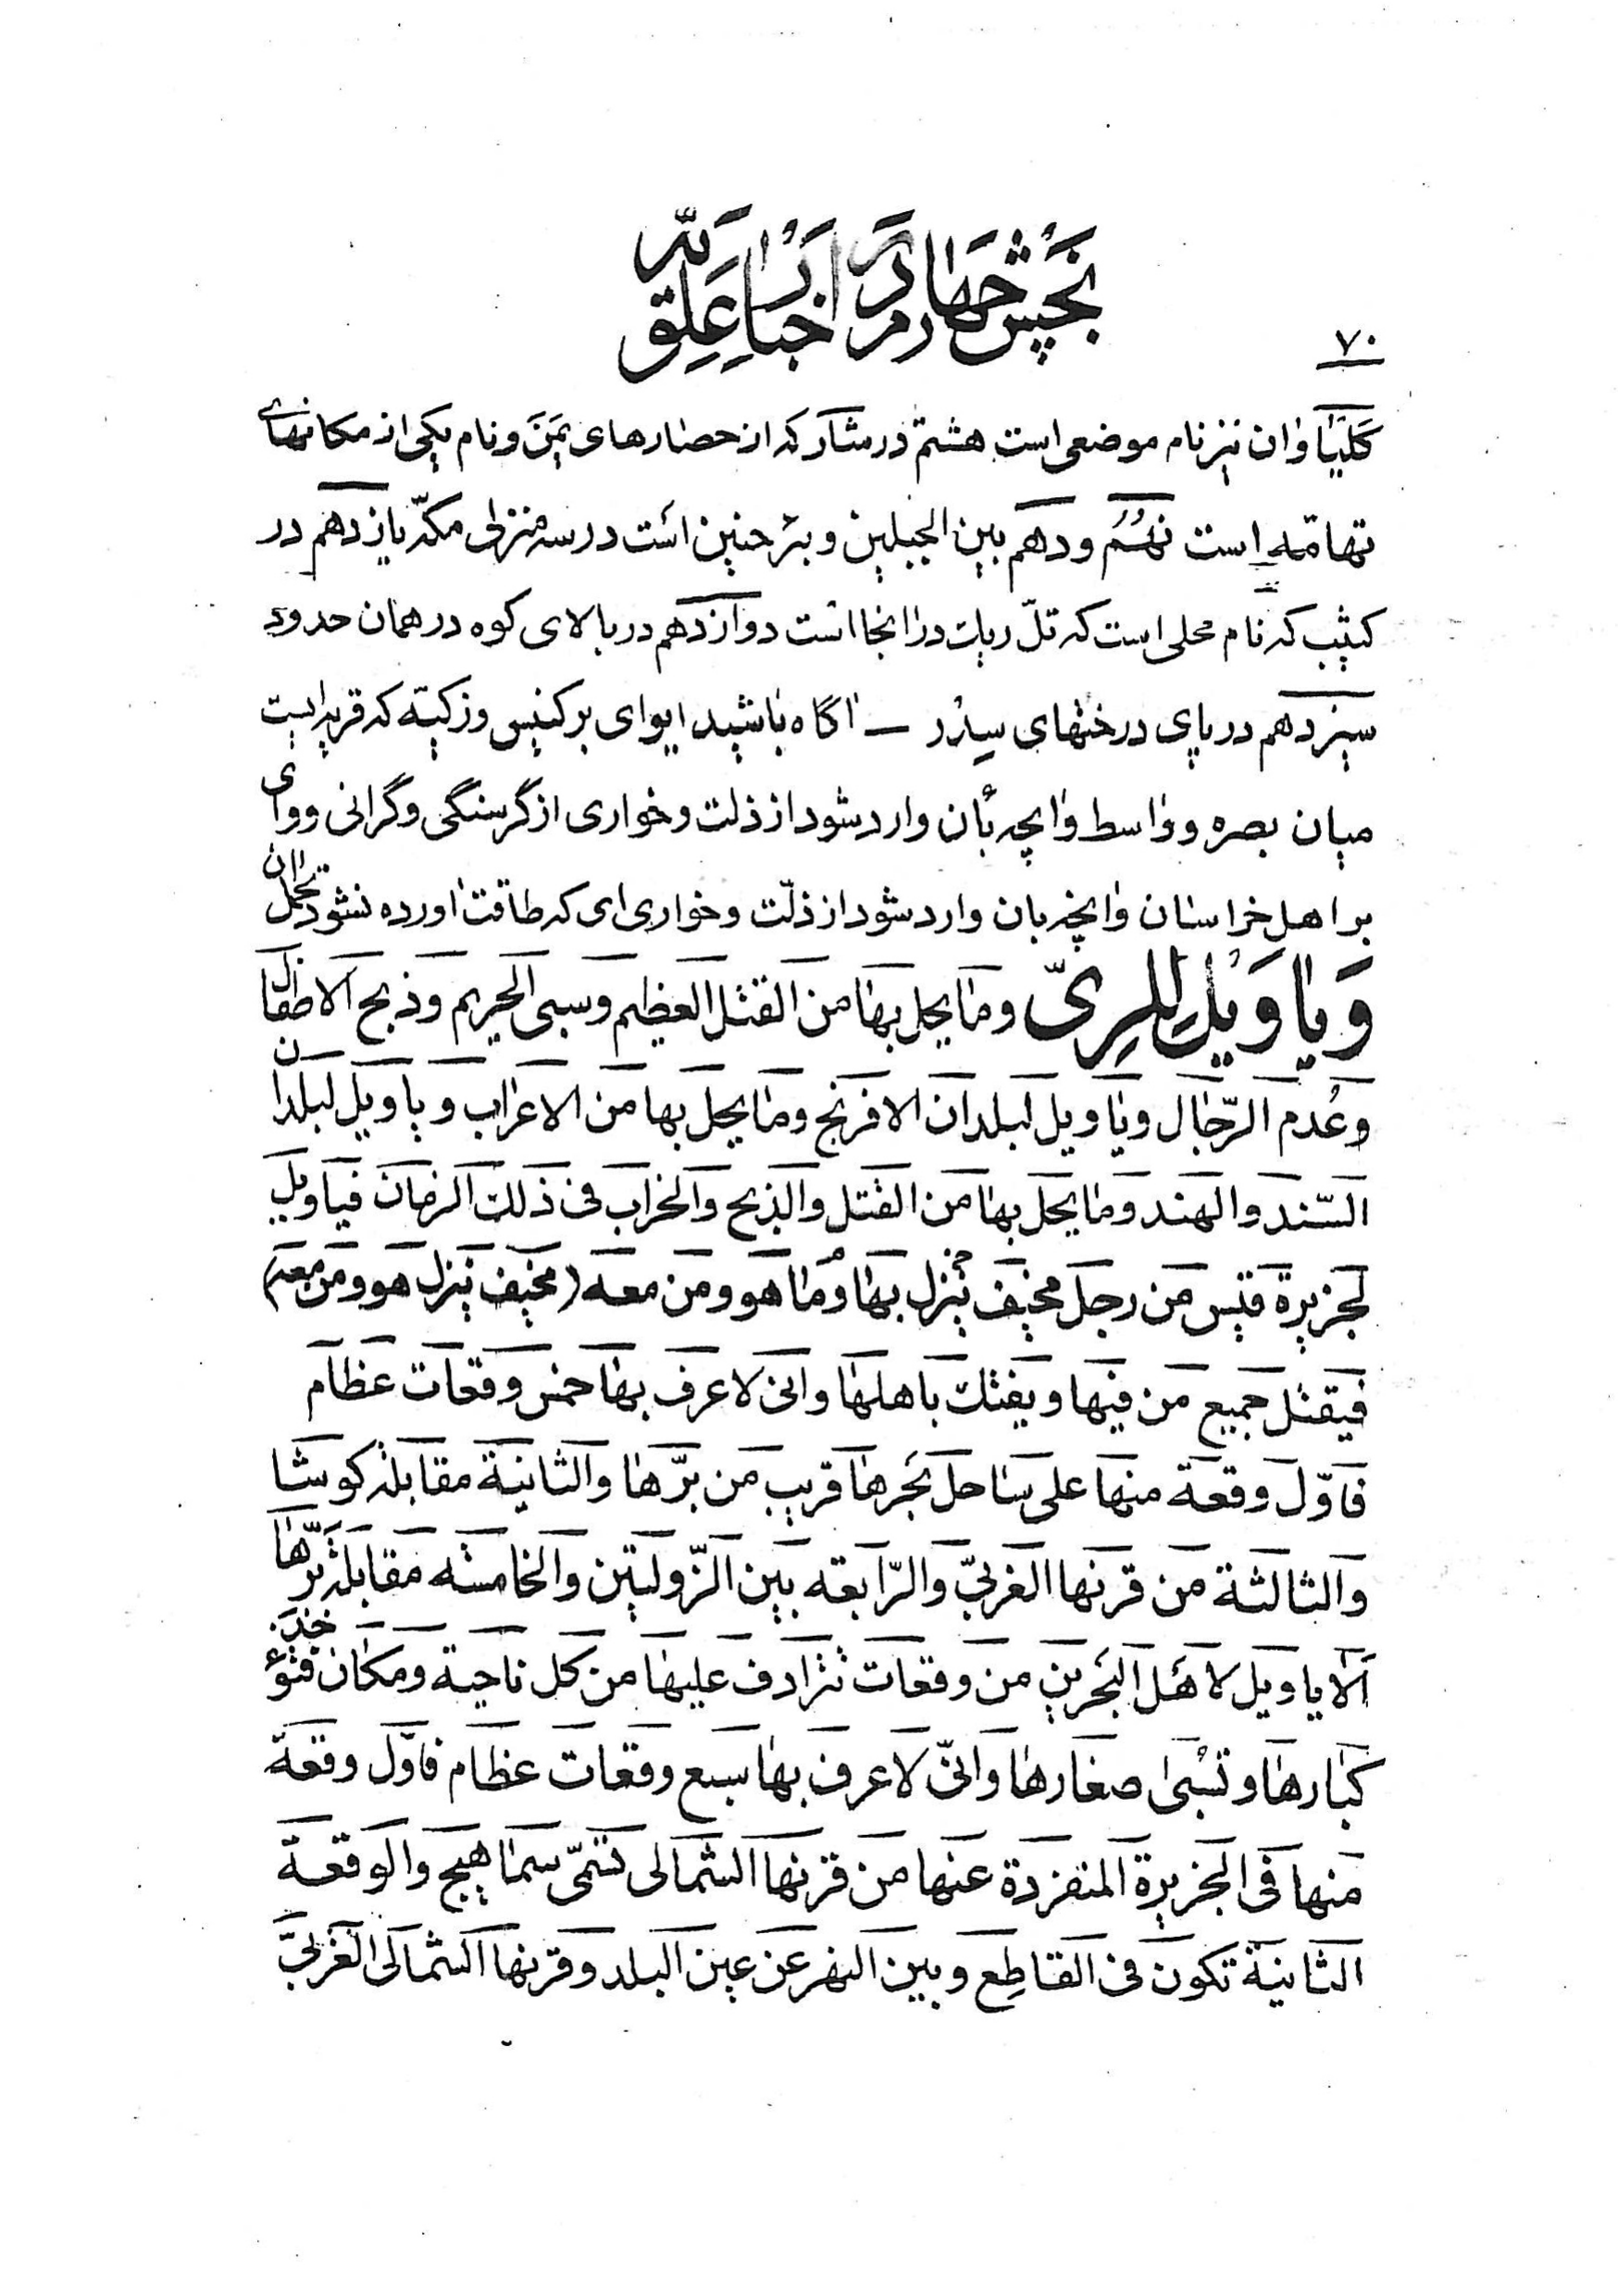 بخش چهارم در اخبار علویّه
۷۰
کلیاوان نیز نام موضعی است هشتم در شار که از حصارهای یمن و نام یکی از مکانهای
تهامّه است نهم و دهم بین الجبلین و بئر حنین است در سه منزلی مکّه یازدهم در
کثیب که نام محلی است که تلّ ریات در انجا است دوازدهم در بالای کوه در همان حدود
سیزدهم در پای درختهای سِدْر – اگاه باشید ایوای بر کنیس وزکیّه که قریه ایست
میان بصره و واسط وانچه بٱن وارد شود از ذلت و خواری از گرسنگی و گرانی و وای
بر اهل خراسان وانچه بان وارد شود از ذلّت و خواری ای که طاقت اورده نشود تحمل ان
وَ یا وَیْل لِلرِیّ وما یحل بها من القتل العظیم وسبی الحریم وذبح الاطفال
وعُدم الرّجال ویا ویل لبلدان الافرنج وما یحل بها من الاعراب و یا ویل لبلدان
السّند والهند وما یحل بها من القتل والذبح والخراب فی ذلک الزمان فیا ویل
لجزیرة قیس من رجل مخیف ینزل بها وما هو ومن معه (مخیف ینزل هو ومن معه)
فیقتل جمیع من فیها ویفتک باهلها وانی لاعرف بها خمس وقعات عظام
فاوّل وقعة منها علی ساحل بحرها قریب من برّها والثانیة مقابلة کوشا
والثالثة من قرنها الغربیّ والرّابعه بین الزّولیتین والخامسه مقابلة برّها
الا یا ویل لاهل البحرین من وقعات تترادف علیها من کل ناحیة ومکان فتؤخذ
کبارها و تسْبی صغارها وانیّ لاعرف بها سبع وقعات عظام فاوّل وقعة
منها فی الجزیرة المنفردة عنها من قرنها الشمالی تسمّی سماهیج والوقعة
الثانیة تکون فی القاطِع وبین النهر عن عین البلد وقرنها الشمالی الغربیّ